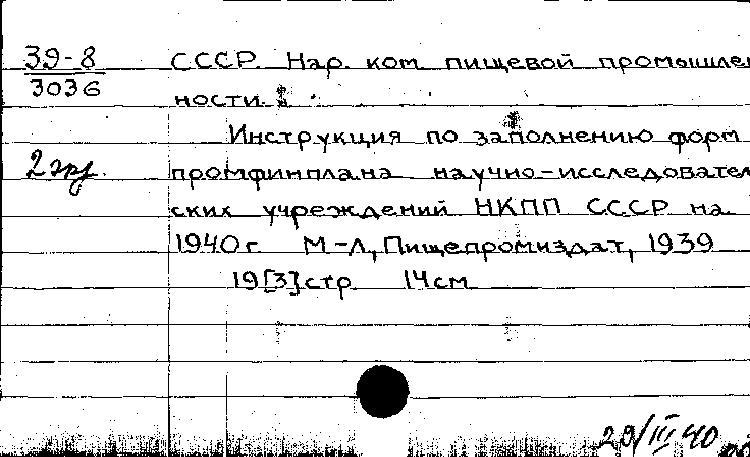 39-8
3036
СССР. Нар. ком. пищевой промышлен
ности.
Инструкция по заполнению форм
2 экз.
промфинплана научно-исследовател
ских учреждений НКПП СССР на
1940 г. М-Л, Пищепромиздат, 1939
19[3] стр. 14 см
29/III 40